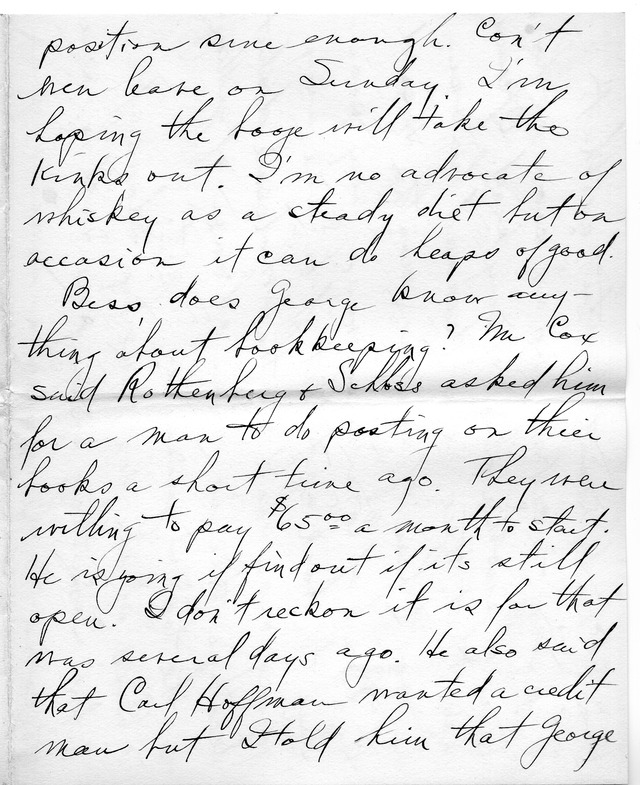 position sure enough. Con't
even leave on Sunday. I'm
hoping the booze will take the
kinks out. I'm no advocate of
whiskey as a steady diet but on
occasion it can do heaps of good.
Bess, does George know any-
thing about bookkeeping? Mr Cox
said Rothenberg & Schloss asked him
for a man to do posting on thier
books a short time ago. They were
willing to pay $65⁰⁰ a month to start.
He is going if find out if its still
open. I don't reckon it is for that
was several days ago. He also said
that Carl Hoffman wanted a credit
man but I told him that George